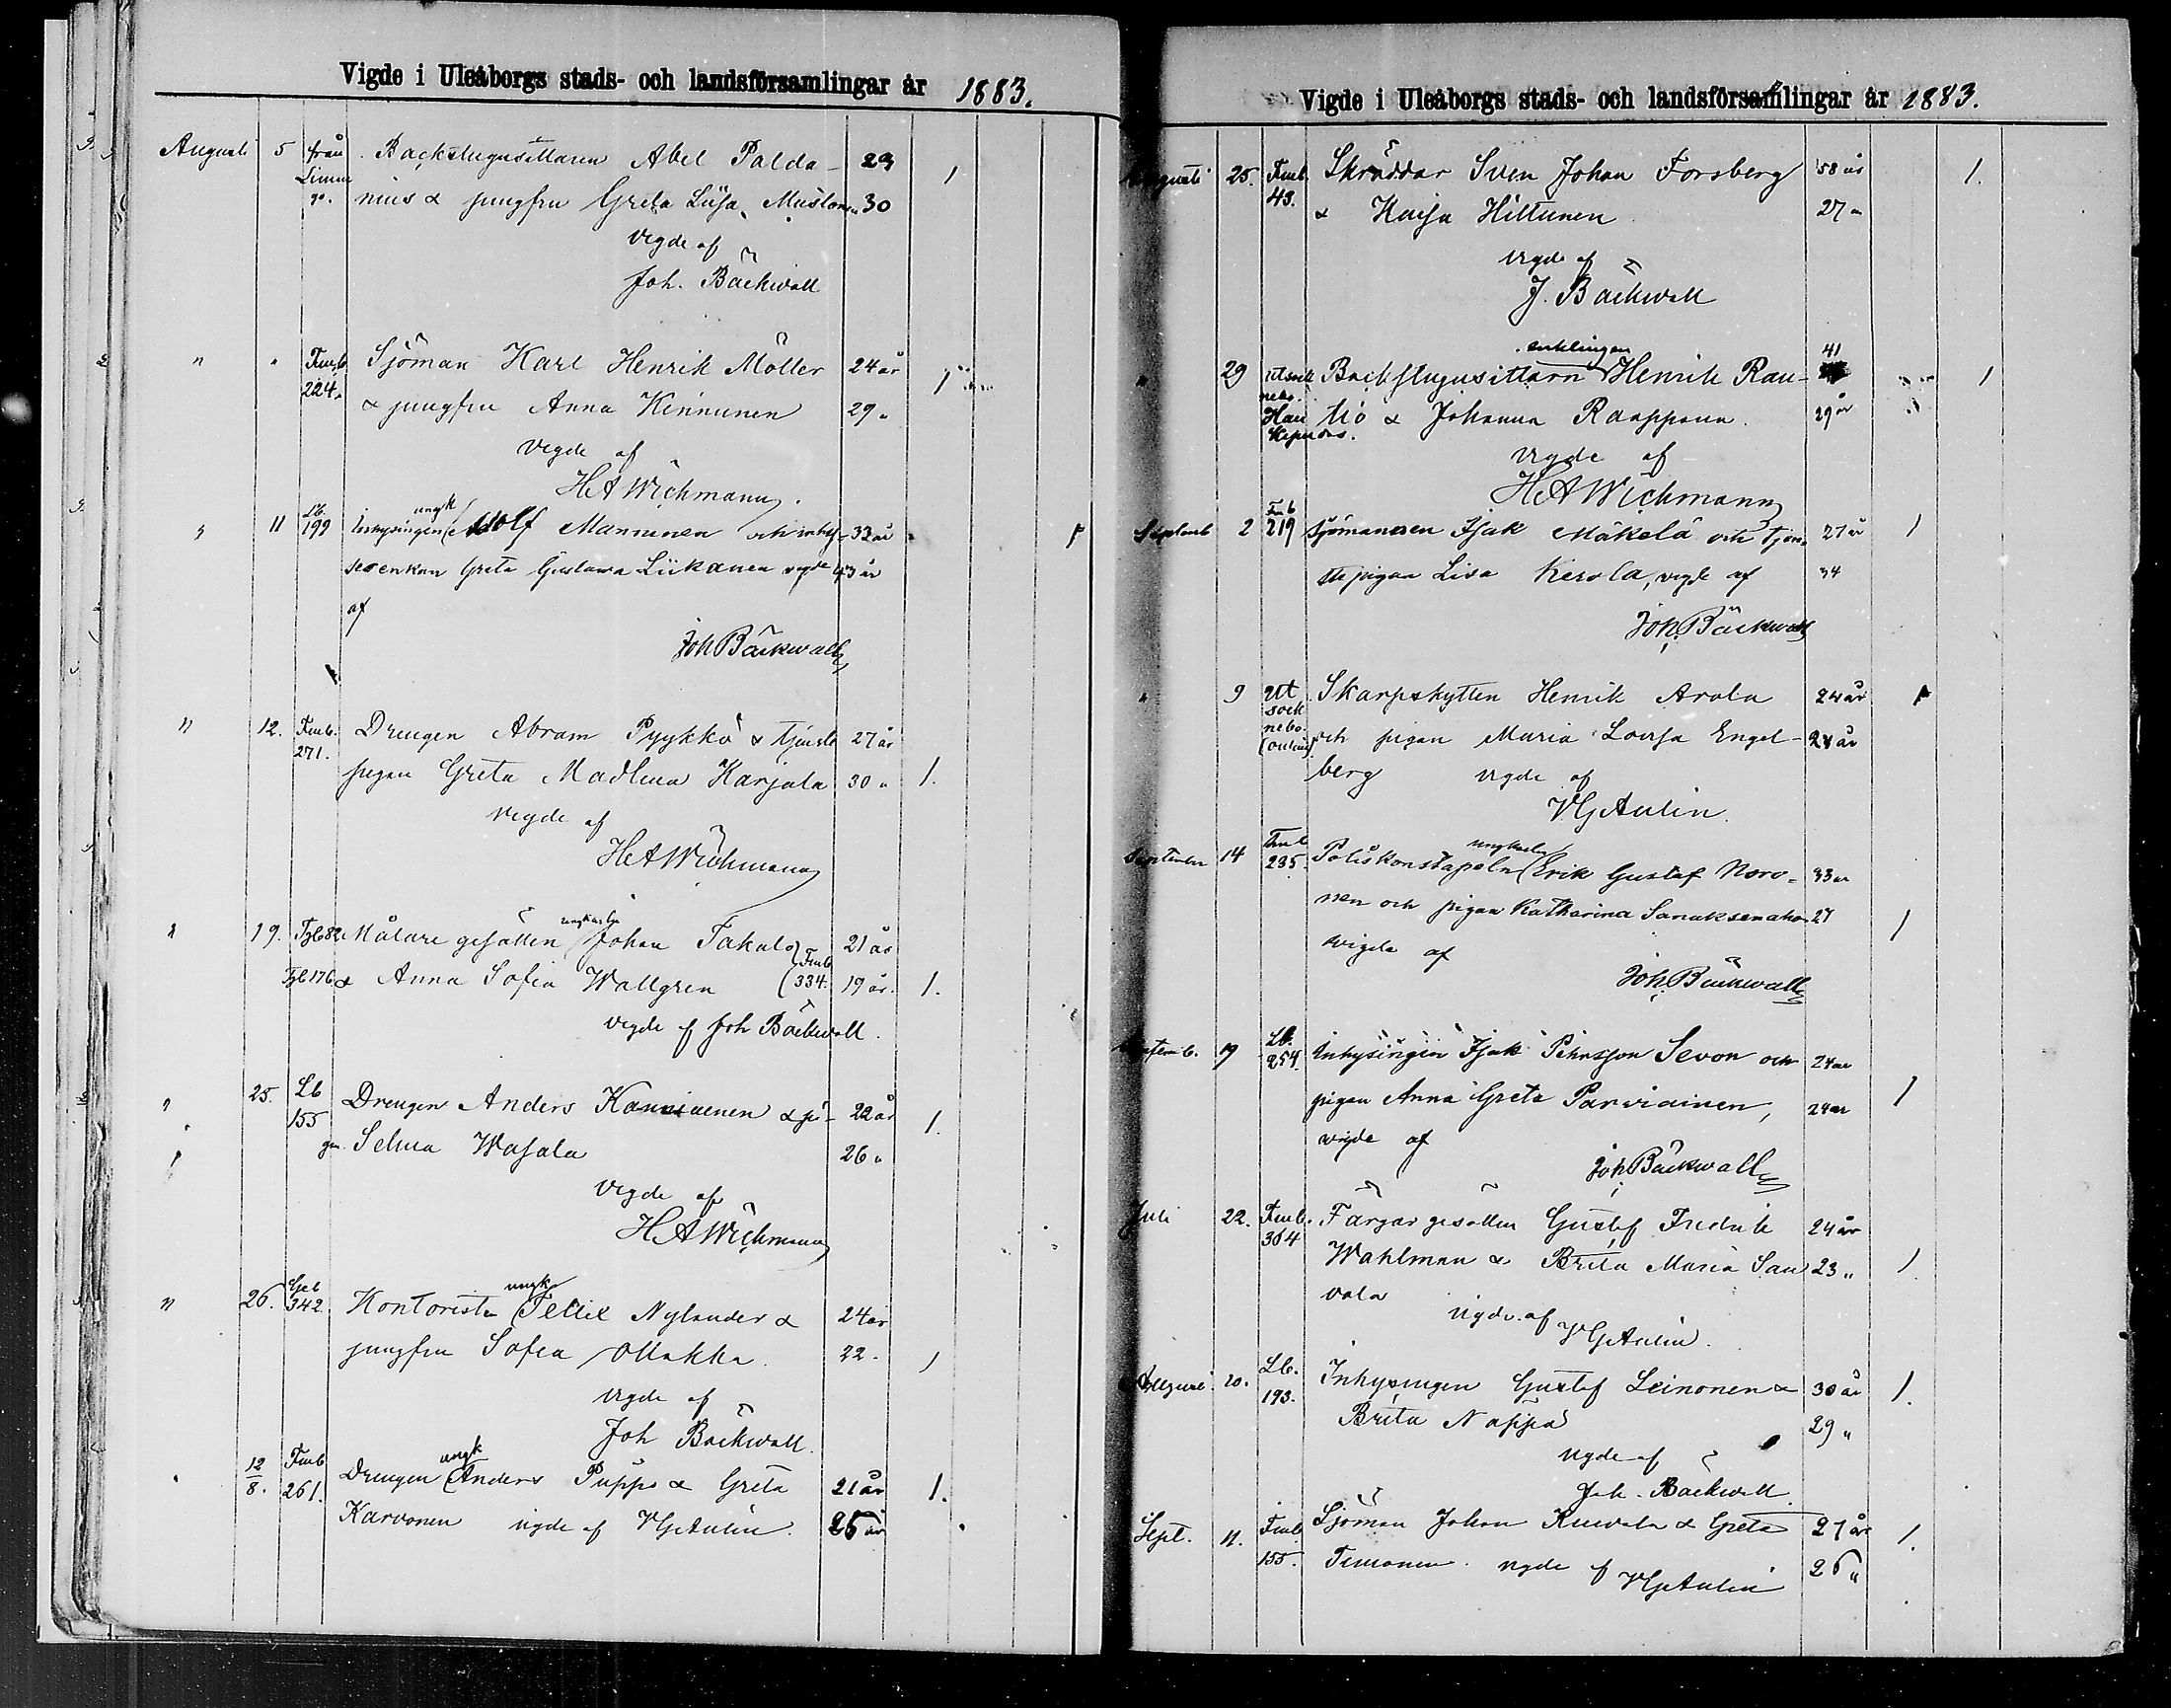 Vigde i Uleåborgs stads- och landsförsamlingar år 1883.
Augusti 5 från Backstugusittaren Abel Palda- 29 1
Limin
go. nius & jungfru Greta Liisa Muston 30
vigde af
Joh. Bäckwall
" " Fmb. Sjöman Karl Henrik Möller 24 år 1
224. & jungfru Anna Kinnunen 29 "
vigde af
HAWichmann.
ungk
" 11 Lb. 199 Inhysingen Adolf Manninen och inhy- 33 år 1
serenkan Greta Gustava Liikanen vigde 43 år
af
Joh Bäckwall
" 12. Fmb. Drengen Abram Pyykkö & tjenste 27 år
271. pigan Greta Madlena Karjala 30 " 1.
vigde af
HAWichmann
" 19. Målare gesällen Johan Takalo 21 år
Fmb
& Anna Sofia Wallgren (334. 19 år. 1.
vigde af Joh Bäckwall.
" 25. Lb Drengen Anders Kanniainen & pi- 22 år 1.
155 gan Selma Wasala 26 "
vigde af
HAWichmann
ungk
" 26. 342. Kontoristen Felix Nylander & 24 år
jungfru Sofia Ollakka. 22. 1
vigde af
Joh Bäckwall.
ungk
" 12/8. Fmb Drengen Anders Puppo & Greta 21 år 1.
261. Karvonen vigde af VGAulin. 25 år
Vigde i Uleåborgs stads- och landsförsamlingar år 1883.
Augusti 25. Fmb. Skräddar Sven Johan Forsberg 58 år 1.
43. & Kaisa Hiltunen 27 "
vigde af
J. Bäckwall
enklingen 41
" 29 utsock Backstugusittarn Henrik Rau- 1
nebo.
Hau tio & Johanna Raappana. 29 år
kipudas.
vigde af
HAWichmann
Septemb 2 Fmb 219 Sjömannen Isak Mäkelä och tjen- 27 år 1
ste pigan Lisa Kerola, vigde af 34
Joh. Bäckwall
" 9 ut Skarpskytten Henrik Arola 24 år 1
sock
nebo. och pigan Maria Lovisa Engel- 24 år
(Oulais)
berg vigde af
VGAulin.
ungkarln
September 14 Fmb 235. Poliskonstapeln Erik Gustaf Noro- 33 år
nen och pigan Katharina Sanaksenaho 27 1
vigde af
Joh. Bäckwall
Septemb. 19 Lb. 254. Inhysingen Isak Pehrsson Sevon och 24 år
pigan Anna Greta Parviainen, 24 år 1
vigde af
Joh. Bäckwall
Juli 22. Fmb. Färgar gesällen Gustaf Fredrik 24 år
364 Wahlman & Brita Maria Sau 23 " 1.
vola vigde af
VGAulin.
Augusti. 20. Lb. Inhysingen Gustaf Leinonen & 30 år 1.
193. Brita Nappa 29 "
vigde af
Joh. Bäckwall
Sept. 11. Fmb Sjöman Johan Kuivala & Greta 27 år 1.
155. Timonen. vigde af VGAulin 26 "